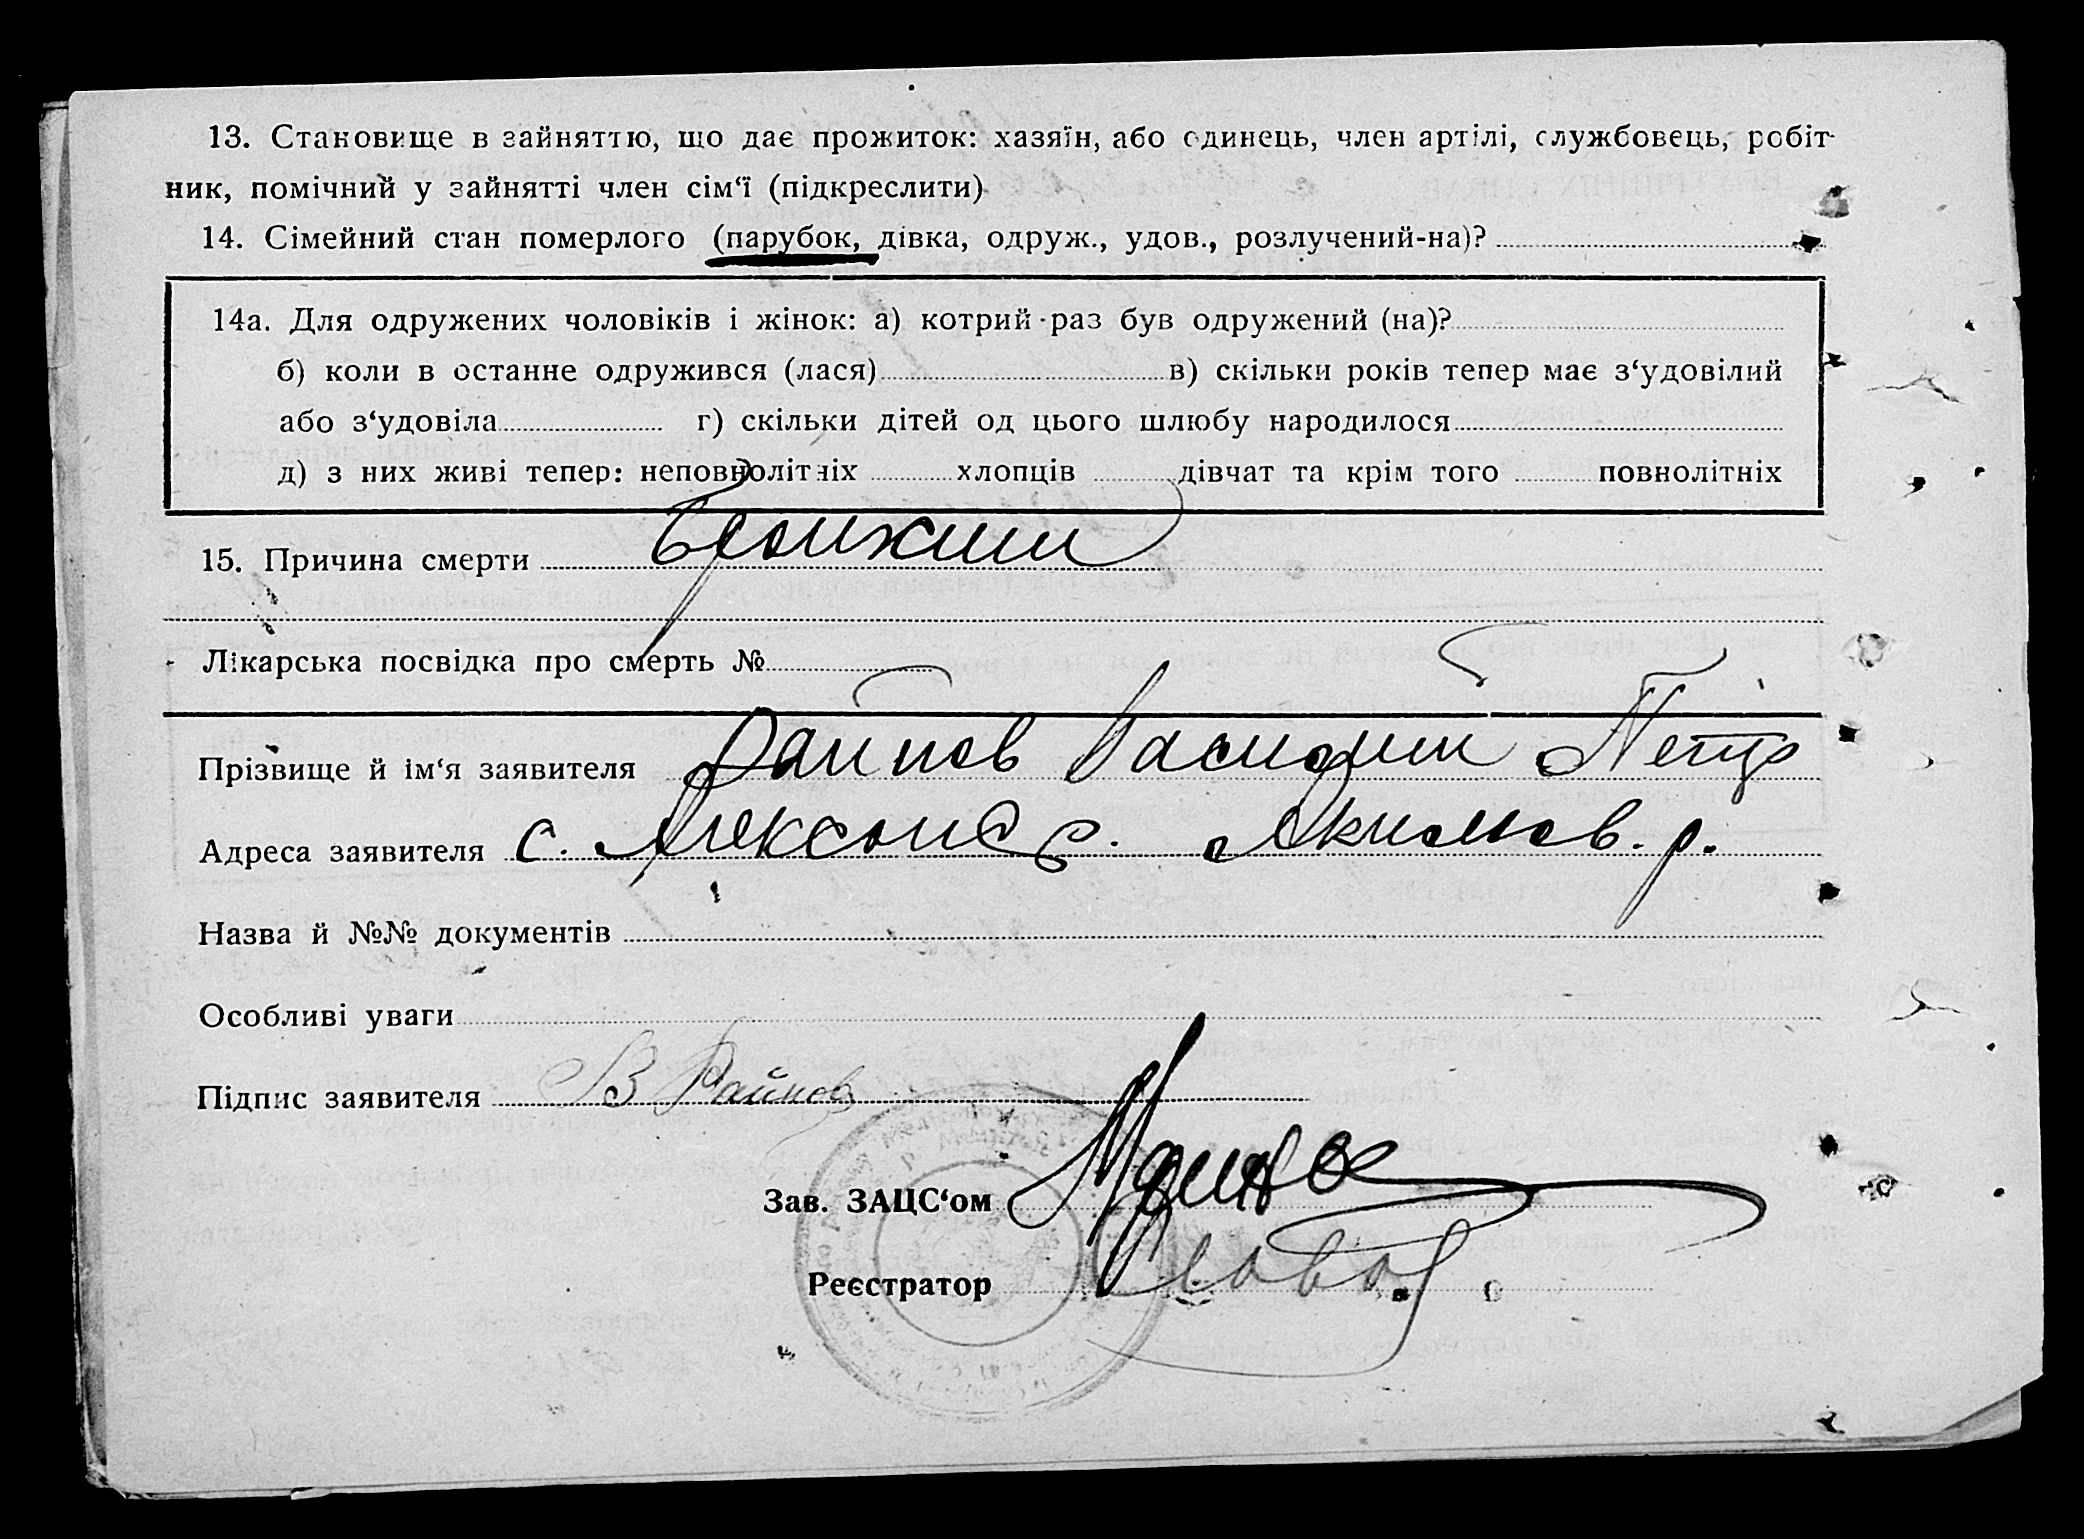 13. Становище в зайняттю, що дає прожиток: хазяїн, або одинець, член артілі, службовець, робіт-
ник, помічний у зайнятті член сім‘ї (підкреслити)
14. Сімейний стан померлого (парубок, дівка, одруж., удов., розлучений-на)?
14а. Для одружених чоловіків і жінок: а) котрий раз був одружений (на)?
б) коли в останне одружився (лася) в) скільки років тепер має з‘удовілий
або з‘удовіла г) скільки дітей од цього шлюбу народилося
д) з них живі тепер: неповнолітніх хлопців дівчат та крім того повнолітніх
15. Причина смерти Бронхит
Лікарська посвідка про смерть №
Прізвище й ім‘я заявителя Райнов Василий Петр
Адреса заявителя с. Якимов. р.
Назва й №№ документів
Особливі уваги
Підпис заявителя В Райнов
Зав. ЗАЦС‘ом
Реєстратор